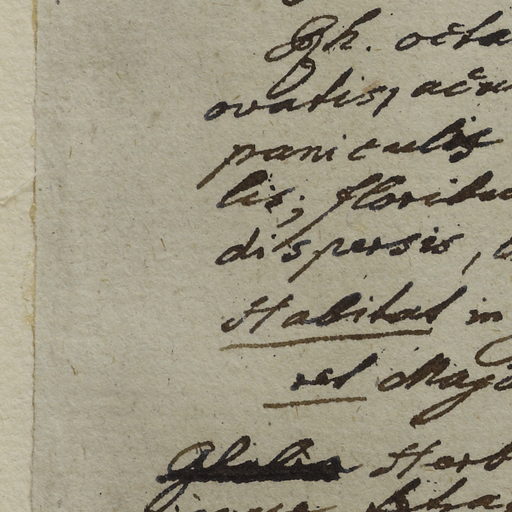 octa
ovatis, acu
paniculis
lis; floribu
dispersis,
Habitat in
vel Mag
Glabra Her